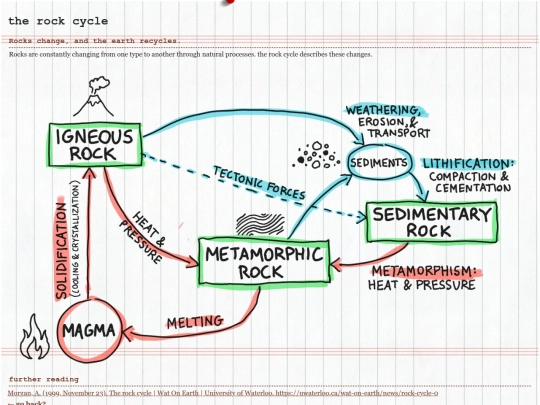 the rock cycle
Rocks change, and the earth recycles.
Rocks are constantly changing from one type to another through natural processes. the rock cycle describes these changes.
WEATHERING,
EROSION, &
TRANSPORT
IGNEOUS
ROCK
SEDIMENTS
LITHIFICATION:
COMPACTION &
CEMENTATION
TECTONIC FORCES
SEDIMENTARY
ROCK
HEAT &
PRESSURE
SOLIDIFICATION
(COOLING & CRYSTALLIZATION)
METAMORPHIC
ROCK
METAMORPHISM:
HEAT & PRESSURE
MAGMA
MELTING
further reading
Morzan, A. (1999, November 23). The rock cycle | Wat On Earth | University of Waterloo. https://uwaterloo.ca/wat-on-earth/news/rock-cycle-0
← go back?